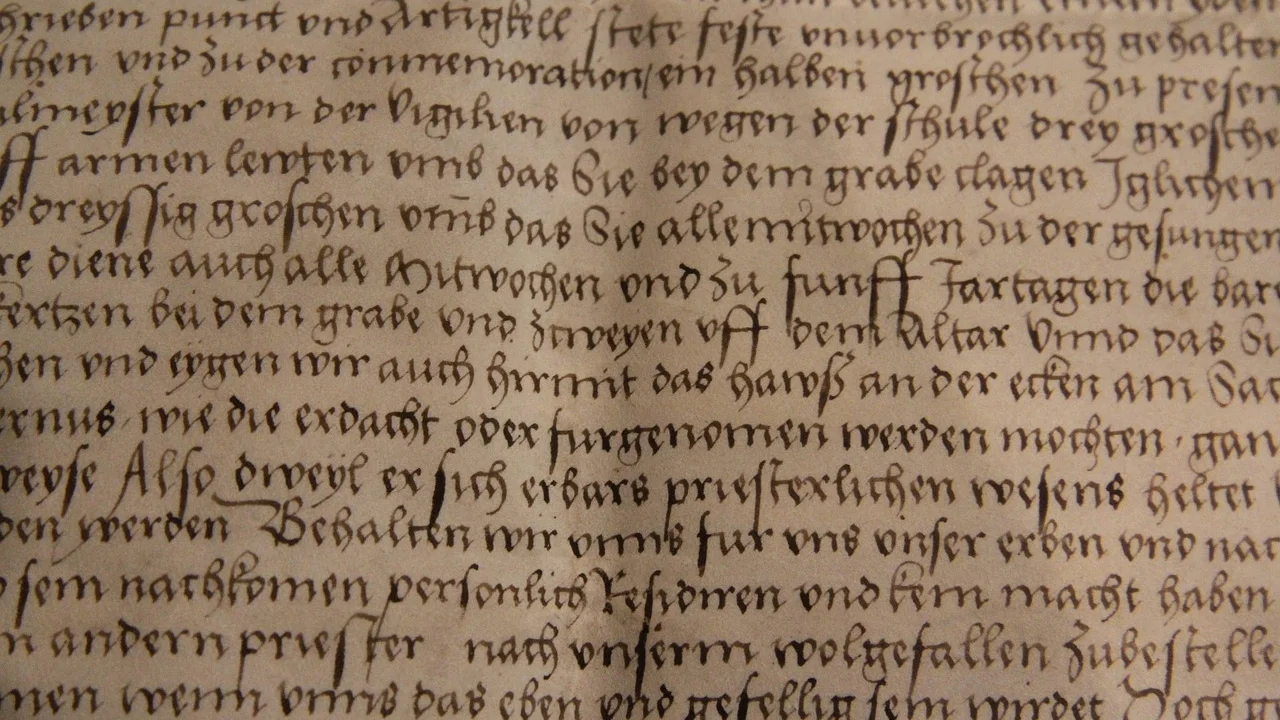 hrieben punct vnd Artigkell stete feste vnuorbrochlich gehalten
schen vnd zu der commemoration/ ein halben groschen zu presen
ulmeyster von der Vigilien von wegen der schule drey grosche
ff armen lewten vmb das Sie bey dem grabe clagen Iglichen
s dreyssig groschen vm̄b das Sie alle mitwochen zu der gesungen
re diene auch alle Mitwochen vnd zu funff Jartagen die bar
kertzen bei dem grabe vnd zcweyen vff dem Altar Vnnd das Si
hen vnd eygen wir auch hirmit das hawß an der ecken am Sac
ernus wie die erdacht oder furgenomen werden mochten · gan
weyse Also dweyl er sich erbars priesterlichen wesens heltet
den werden Behalten wir vnns fur vns vnser erben vnd nac
sein nachkomen personlich Residiren vnd kein macht haben
n andern priester nach vnserm wolgefallen zubestelle
men wenn vnns das eben vnd gefellig sein wirdet Doch g